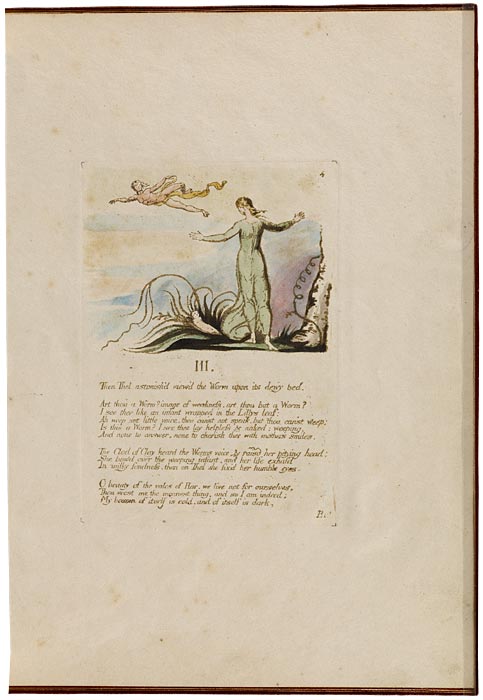 4
III.
Then Thel astonish'd view'd the Worm upon its dewy bed.
Art thou a Worm? image of weakness, art thou but a Worm?
I see thee like an infant wrapped in the Lillys leaf:
Ah weep not little voice, thou canst not speak, but thou canst weep;
Is this a Worm? I see thee lay helpless & naked: weeping,
And none to answer, none to cherish thee with mothers smiles.
The Clod of Clay heard the Worms voice, & raisd her pitying head;
She bow'd over the weeping infant, and her life exhal'd
In milky fondness, then on Thel she fix'd her humble eyes.
O beauty of the vales of Har, we live not for ourselves,
Thou seest me the meanest thing, and so I am indeed;
My bosom of itself is cold, and of itself is dark,